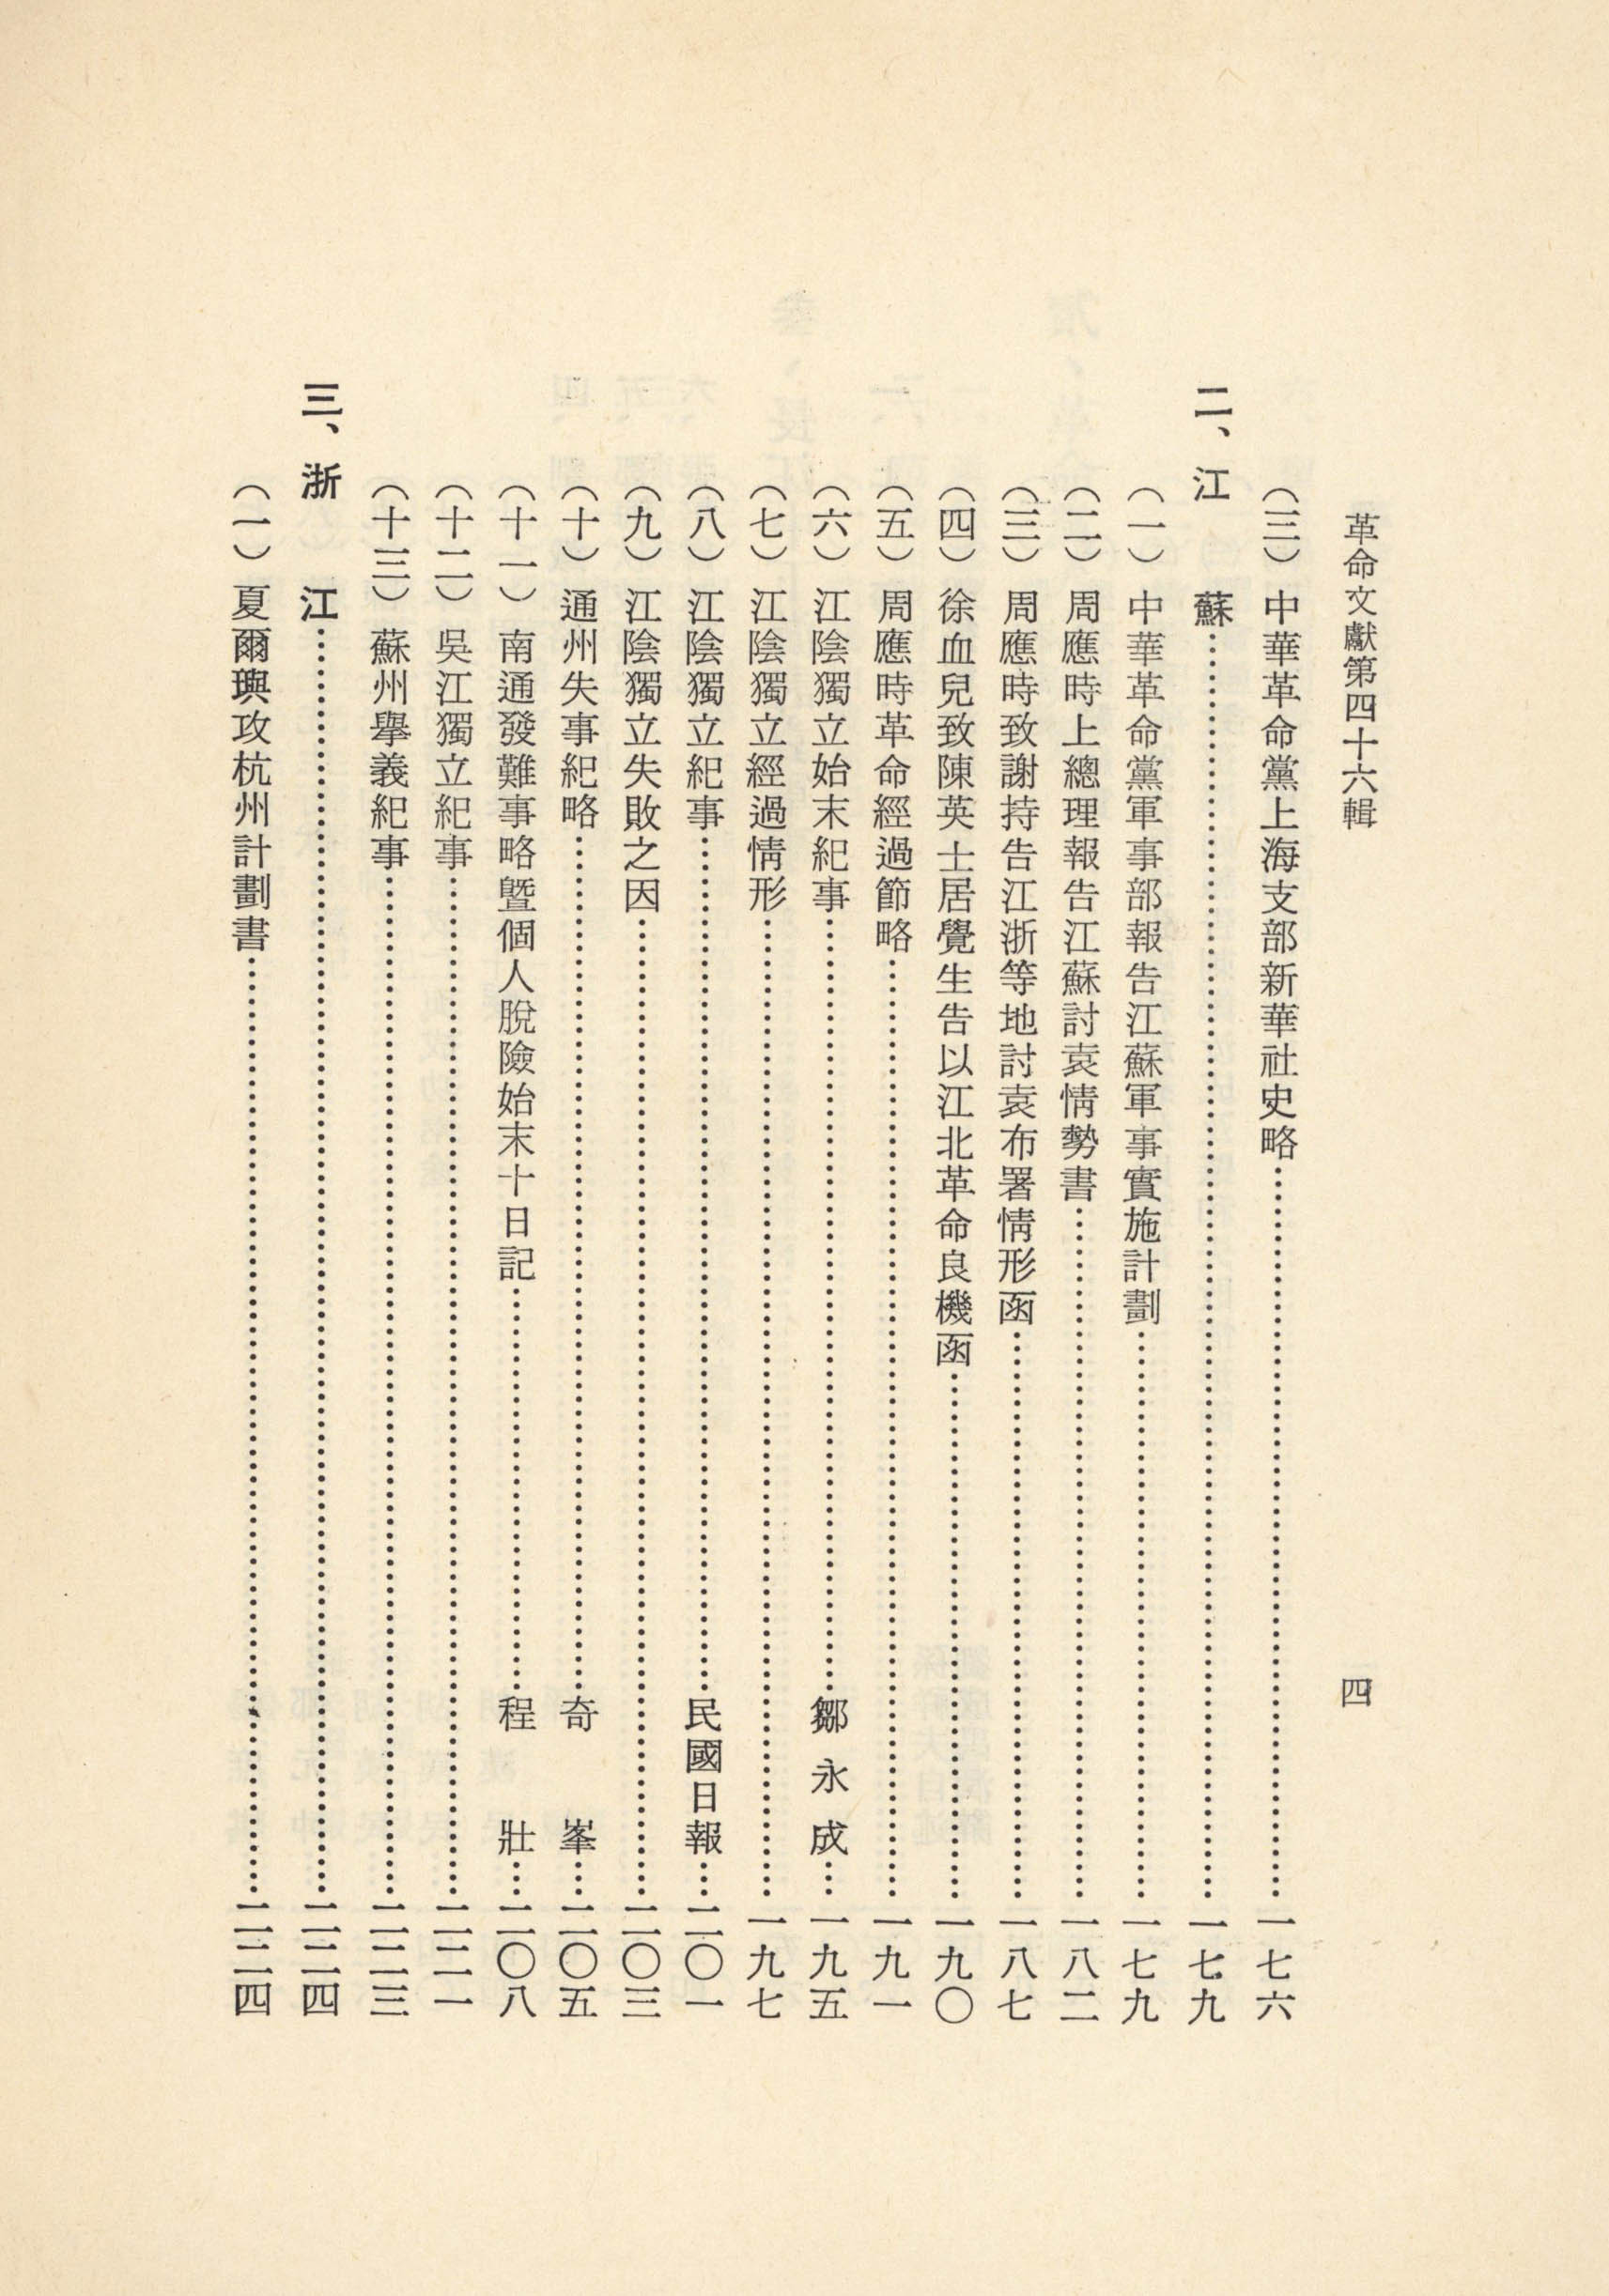 革命文獻第四十六輯 四
(三) 中華革命黨上海支部新華社史略……一七六
二、江 蘇……一七九
(一) 中華革命黨軍事部報告江蘇軍事實施計劃……一七九
(二) 周應時上總理報告江蘇討袁情勢書……一八二
(三) 周應時致謝持告江浙等地討袁布署情形函……一八七
(四) 徐血兒致陳英士居覺生告以江北革命良機函……一九〇
(五) 周應時革命經過節略……一九一
(六) 江陰獨立始末紀事……鄒永成……一九五
(七) 江陰獨立經過情形……一九七
(八) 江陰獨立紀事……民國日報……二〇一
(九) 江陰獨立失敗之因……二〇三
(十) 通州失事紀略……奇 峯……二〇五
(十一) 南通發難事略曁個人脫險始末十日記……程 壯……二〇八
(十二) 吳江獨立紀事……二二一
(十三) 蘇州舉義紀事……二二三
三、浙 江……二二四
(一) 夏爾璵攻杭州計劃書……二二四